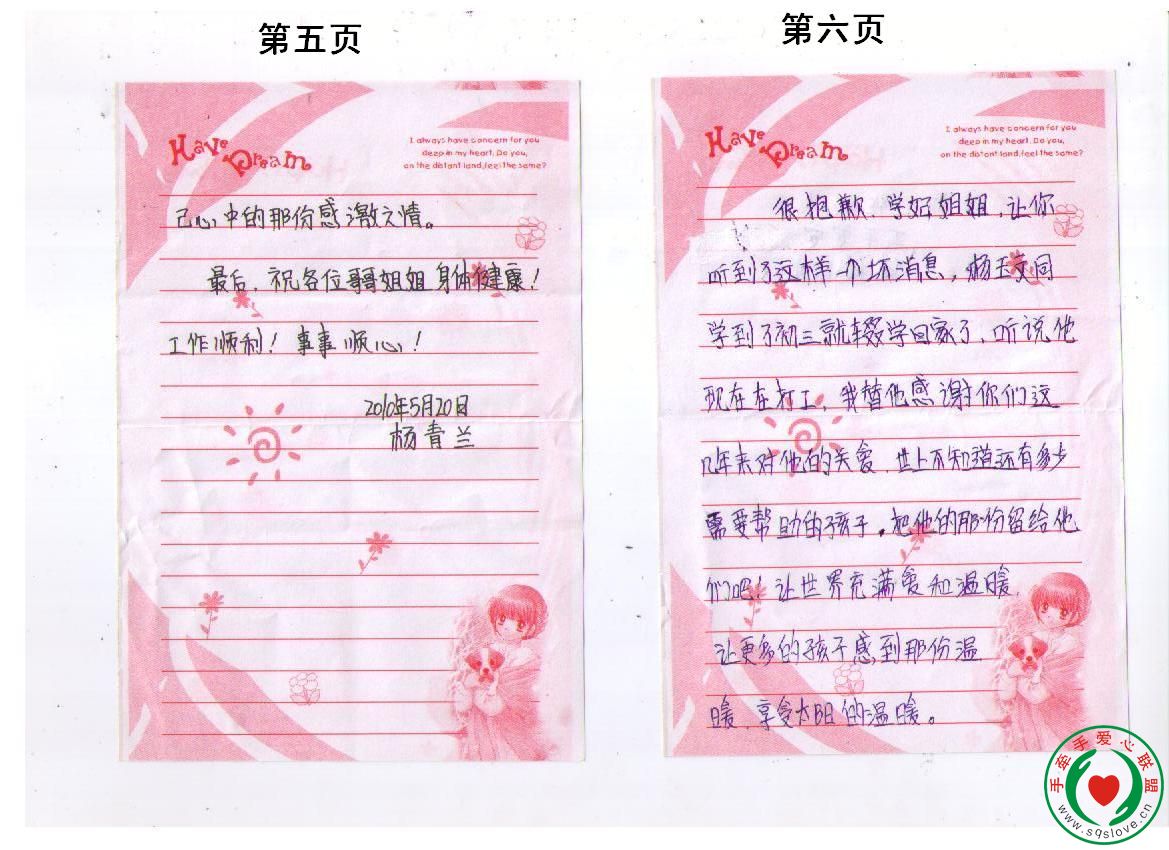 第五页
Have Dream
I always have concern for you
deep in my heart. Do you,
on the distant land, feel the same?
己心中的那份感激之情。
最后，祝各位哥哥姐姐身体健康！
工作顺利！事事顺心！
2010年5月20日
杨青兰
第六页
Have Dream
I always have concern for you
deep in my heart. Do you,
on the distant land, feel the same?
很抱歉，学好姐姐，让你
听到了这样一个坏消息，杨玉文同
学到了初三就辍学回家了，听说他
现在在打工，我替他感谢你们这
几年来对他的关爱，世上不知道还有多少
需要帮助的孩子，把他的那份留给他
们吧！让世界充满爱和温暖，
让更多的孩子感到那份温
暖，享受太阳的温暖。
手牵手爱心联盟
www.sqslove.cn